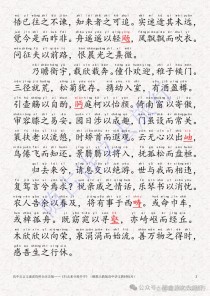 悟已往之不谏，知来者之可追。实迷途其未远，
觉今是而昨非。舟遥遥以轻飏，风飘飘而吹衣。
问征夫以前路，恨晨光之熹微。
乃瞻衡宇，载欣载奔。僮仆欢迎，稚子候门。
三径就荒，松菊犹存。携幼入室，有酒盈樽。
引壶觞以自酌，眄庭柯以怡颜。倚南窗以寄傲，
审容膝之易安。园日涉以成趣，门虽设而常关。
策扶老以流憩，时矫首而遐观。云无心以出岫，
鸟倦飞而知还。景翳翳以将入，抚孤松而盘桓。
归去来兮，请息交以绝游。世与我而相违，
复驾言兮焉求？悦亲戚之情话，乐琴书以消忧。
农人告余以春及，将有事于西畴。或命巾车，
或棹孤舟。既窈窕以寻壑，亦崎岖而经丘。
木欣欣以向荣，泉涓涓而始流。善万物之得时，
感吾生之行休。